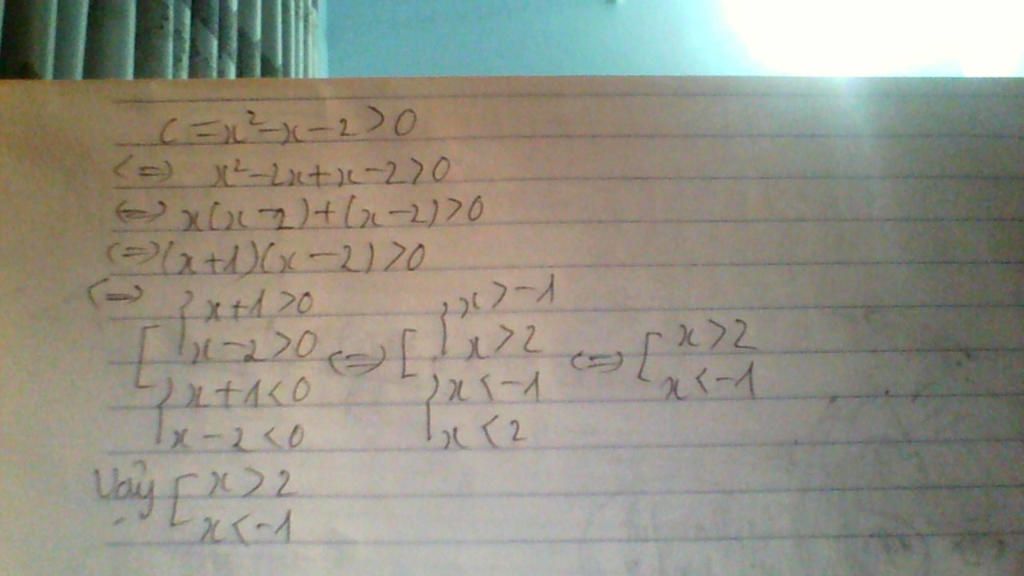 C = x² - x - 2 > 0
<=> x² - 2x + x - 2 > 0
<=> x(x - 2) + (x - 2) > 0
<=> (x + 1)(x - 2) > 0
<=> [ { x + 1 > 0
x - 2 > 0
{ x + 1 < 0
x - 2 < 0
<=> [ { x > -1
x > 2
{ x < -1
x < 2
<=> [ x > 2
x < -1
Vậy [ x > 2
x < -1